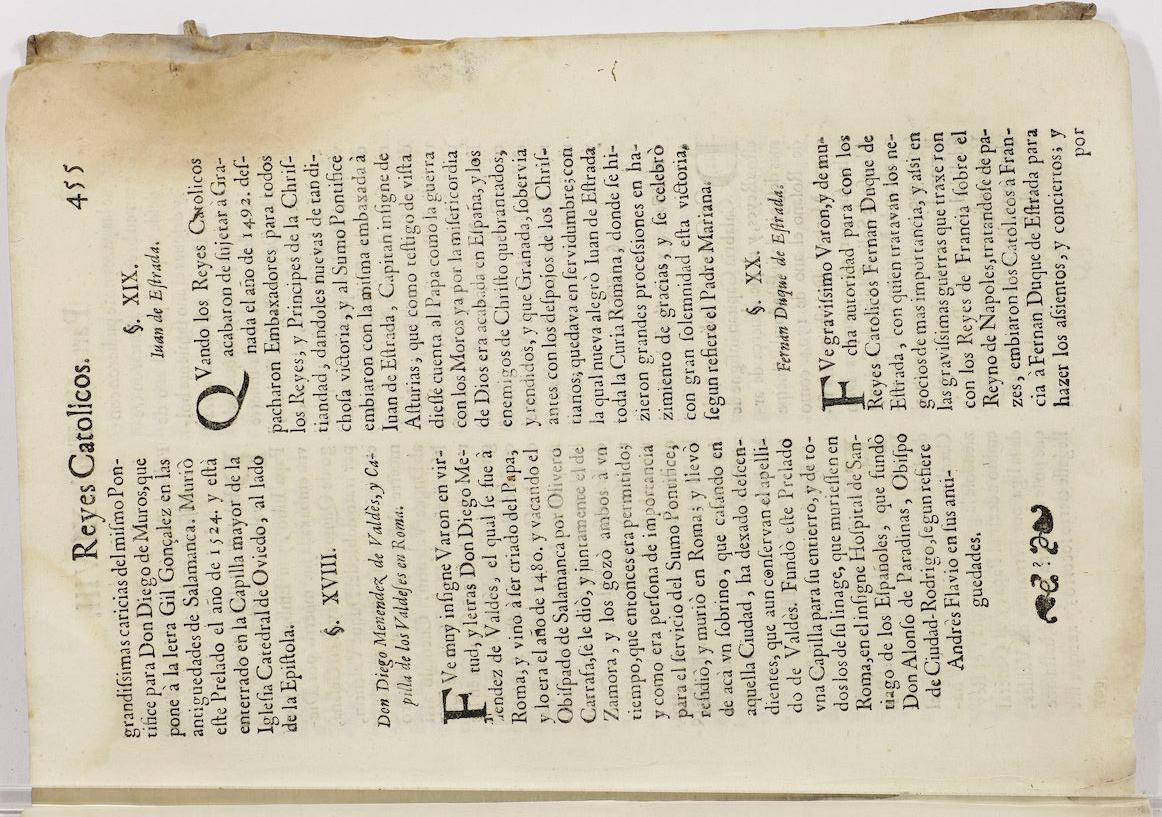 Reyes Catolicos. 455
grandiſsimas caricias del miſmo Pon-
tifice para Don Diego de Muros, que
pone à la letra Gil Gonçalez en las
antiguedades de Salamanca. Muriò
eſte Prelado el año de 1524. y eſtà
enterrado en la Capilla mayor de la
Igleſia Catedral de Oviedo, al lado
de la Epiſtola.
§. XVIII.
Don Diego Menendez de Valdès, y Ca-
pilla de los Valdeſes en Roma.
FVe muy inſigne Varon en vir-
tud, y letras Don Diego Me-
nendez de Valdes, el qual ſe fue à
Roma, y vino à ſer criado del Papa,
y lo era el año de 1480. y vacando el
Obiſpado de Salamanca por Olivero
Carrafa, ſe le diò, y juntamente el de
Zamora, y los gozò ambos à vn
tiempo, que entonces era permitido;
y como era perſona de importancia
para el ſervicio del Sumo Pontifice,
reſidiò, y muriò en Roma; y llevò
de acà vn ſobrino, que caſando en
aquella Ciudad, ha dexado deſcen-
dientes, que aun conſervan el apelli-
do de Valdès. Fundò eſte Prelado
vna Capilla para ſu entierro, y de to-
dos los de ſu linage, que murieſſen en
Roma, en el inſigne Hoſpital de San-
tiago de los Eſpañoles, que fundò
Don Alonſo de Paradinas, Obiſpo
de Ciudad-Rodrigo, ſegun refiere
Andrès Flavio en ſus anti-
guedades.
§. XIX.
Iuan de Eſtrada.
QVando los Reyes Catolicos
acabaron de ſujetar à Gra-
nada el año de 1492. deſ-
pacharon Embaxadores para todos
los Reyes, y Principes de la Chriſ-
tiandad, dandoles nuevas de tan di-
choſa victoria, y al Sumo Pontifice
embiaron con la miſma embaxada à
Iuan de Eſtrada, Capitan inſigne de
Aſturias; que como teſtigo de viſta
dieſſe cuenta al Papa como la guerra
con los Moros ya por la miſericordia
de Dios era acabada en Eſpaña, y los
enemigos de Chriſto quebrantados,
y rendidos, y que Granada, ſobervia
antes con los deſpojos de los Chriſ-
tianos, quedava en ſervidumbre; con
la qual nueva alegrò Iuan de Eſtrada
toda la Curia Romana, donde ſe hi-
zieron grandes proceſsiones en ha-
zimiento de gracias, y ſe celebrò
con gran ſolemnidad eſta victoria,
ſegun refiere el Padre Mariana.
§. XX.
Fernan Duque de Eſtrada.
FVe graviſsimo Varon, y de mu-
cha autoridad para con los
Reyes Catolicos Fernan Duque de
Eſtrada, con quien tratavan los ne-
gocios de mas importancia, y aſsi en
las graviſsimas guerras que traxeron
con los Reyes de Francia ſobre el
Reyno de Napoles, tratandoſe de pa-
zes, embiaron los Catolicos à Fran-
cia à Fernan Duque de Eſtrada para
hazer los aſsientos, y conciertos; y
por